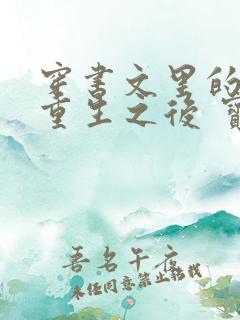 穿书文里的
重生之后
吾名午夜
未经同意禁止转载